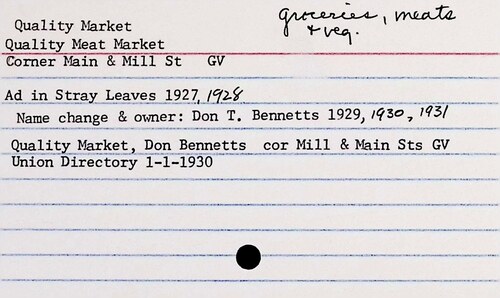 Quality Market
groceries, meats
& veg.
Quality Meat Market
Corner Main & Mill St GV
Ad in Stray Leaves 1927, 1928
Name change & owner: Don T. Bennetts 1929, 1930, 1931
Quality Market, Don Bennetts cor Mill & Main Sts GV
Union Directory 1-1-1930